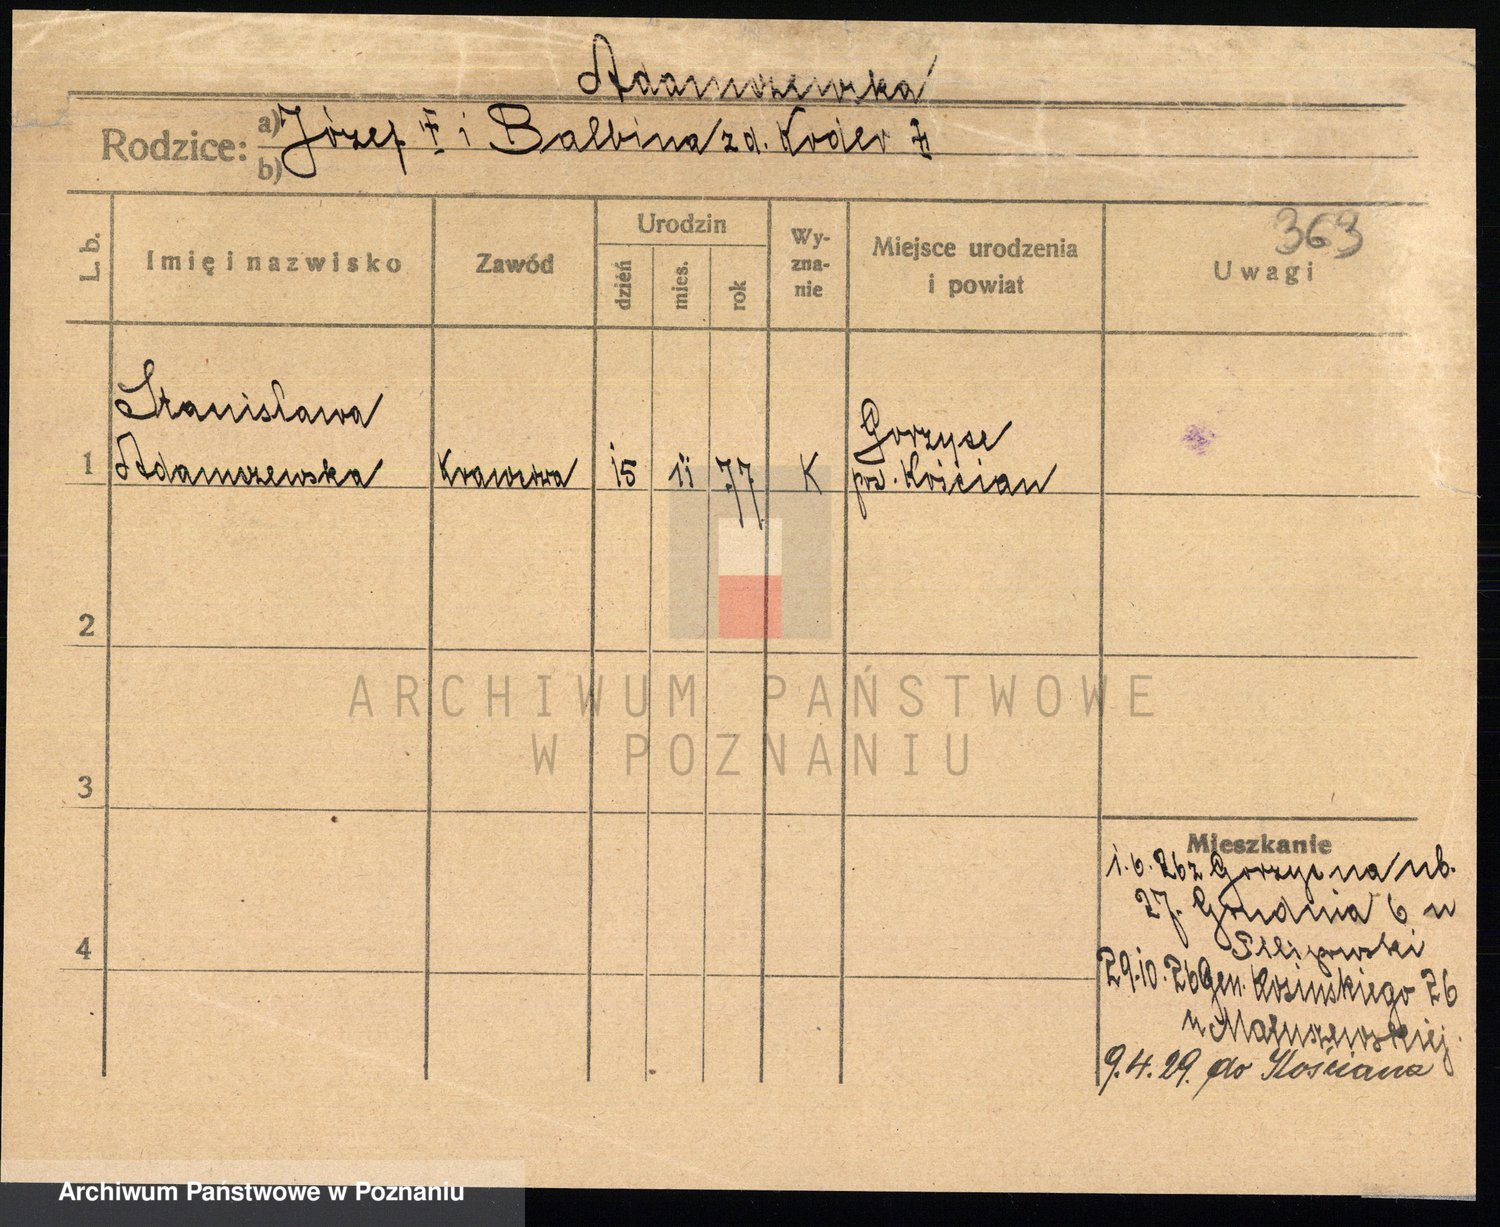 Adamszewska
Rodzice: a) Józef † i Balbina z d. Koder †
b)
363
L. b.
Imię i nazwisko
Zawód
Urodzin
dzień
mies.
rok
Wy-
zna-
nie
Miejsce urodzenia
i powiat
Uwagi
Stanisława
1 Adamszewska Krawcowa 15 11 77 K Gorzyce
pow. Kościan
2
ARCHIWUM PAŃSTWOWE
W POZNANIU
3
Mieszkanie
1.6.26 z Gorzyc na ub.
27. Grudnia 6 u
4
29.10.26 Gen. Kosińskiego 26
u Matuszewskiej.
9.4.29. do Kościana
Archiwum Państwowe w Poznaniu